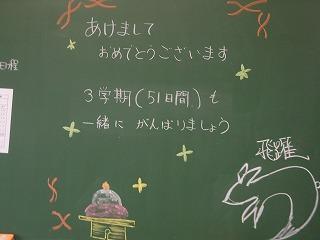 あけまして
おめでとうございます
日程
3学期(51日間)も
一緒に がんばりましょう
飛躍